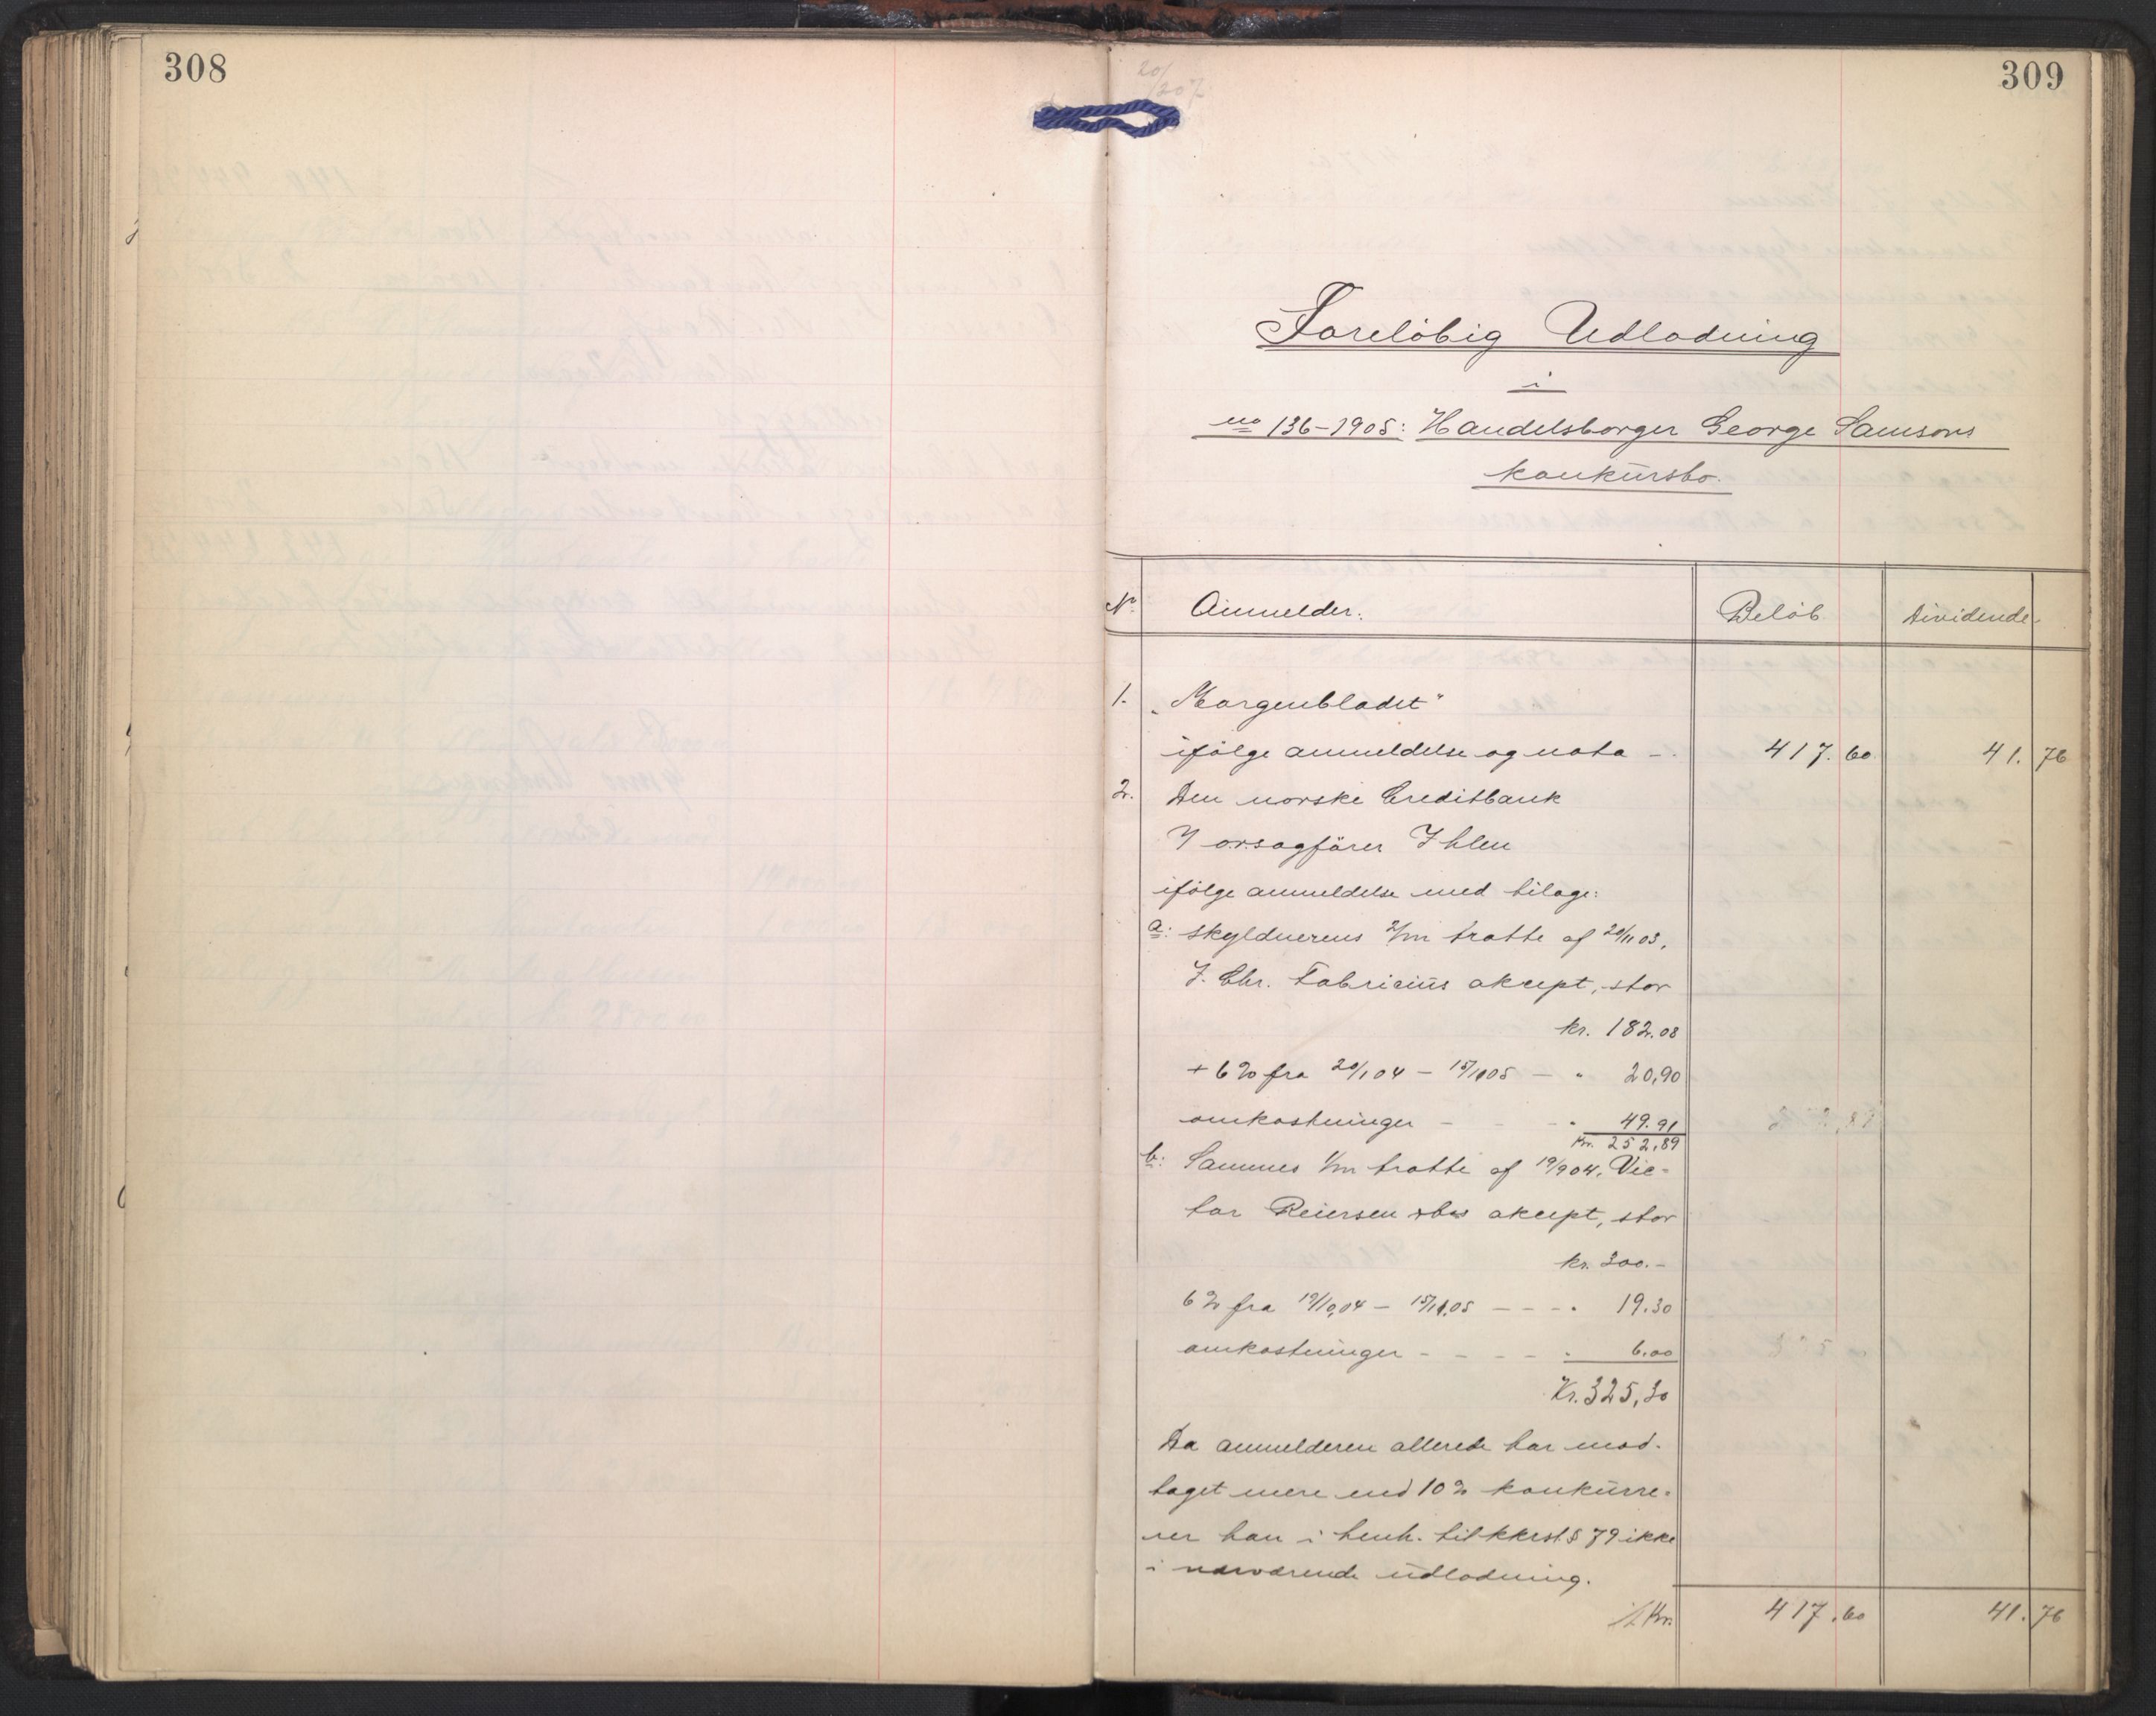 308
309
20/
207
Foreløbig Udlodning
i
no 136-1905: Handelsborger George Samsons
konkursbo.
No. Anmelder. Beløb Dividende
1. „Morgenbladet"
ifølge anmeldelse og nota - 417.60 41.76
2. Den norske Creditbank
v/ o.r.sagfører Ihlen
ifølge anmeldelse med bilage:
a: skyldnerens 2/m tratte af 20/11 03,
J. Chr. Fabricius aksept, stor
kr. 182.08
+ 6 % fra 20/1 04 - 15/11 05 - " 20,90
omkostninger - - - " 49.91
Kr. 252,89
b: Sammes 1/m tratte af 19/9 04, Vic-
tor Reiersen aksept, stor
kr. 300.-
6 % fra 19/10 04 - 15/11.05 - - - " 19.30
omkostninger - - - - " 6.00
Kr. 325,30
Da anmelderen allerede har mod-
taget mere end 10 % konkurre-
rer han i henh. til kkrsl. § 79 ikke
i nærværende udlodning.
Kr. 417.60 41.76